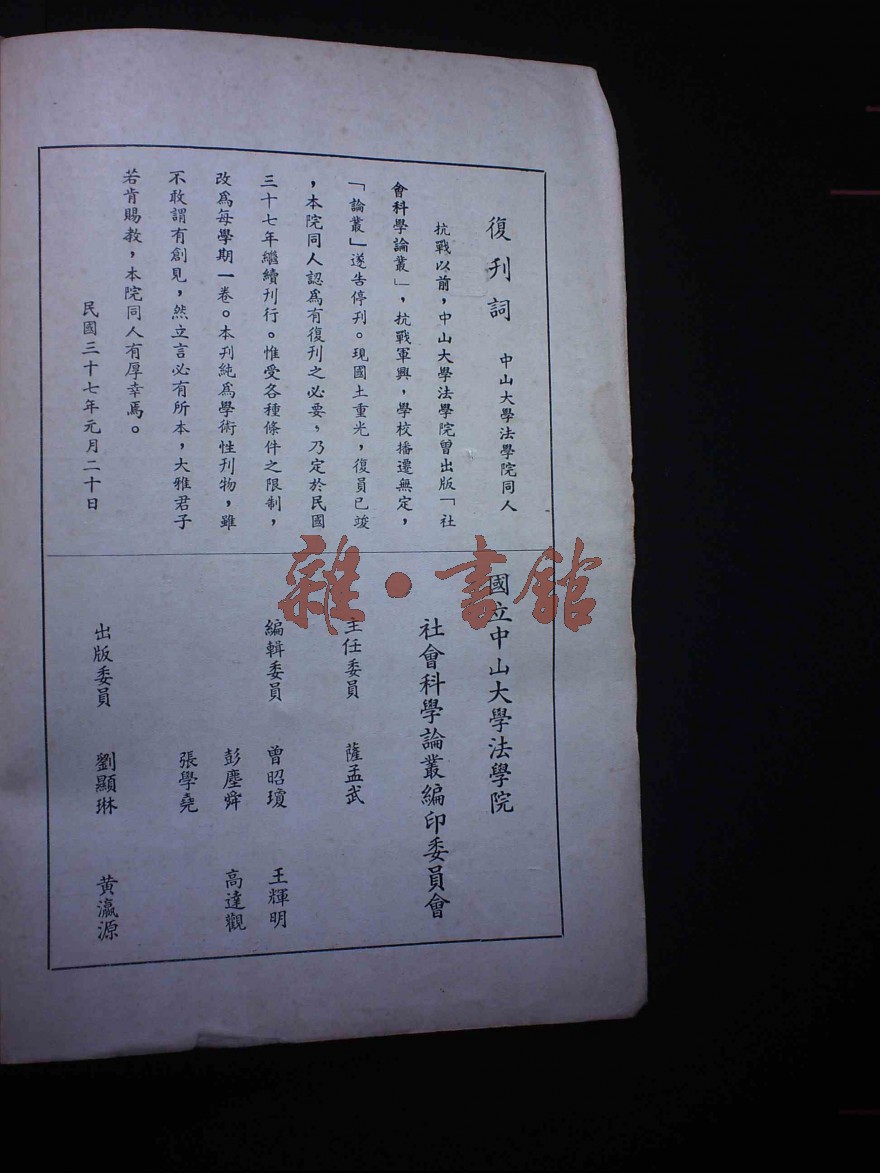 復刊詞　中山大學法學院同人
抗戰以前，中山大學法學院曾出版「社
會科學論叢」，抗戰軍興，學校播遷無定，
「論叢」遂告停刊。現國土重光，復員已竣
，本院同人認爲有復刊之必要，乃定於民國
三十七年繼續刊行。惟受各種條件之限制，
改爲每學期一卷。本刊純爲學術性刊物，雖
不敢謂有創見，然立言必有所本，大雅君子
若肯賜教，本院同人有厚幸焉。
民國三十七年元月二十日
國立中山大學法學院
社會科學論叢編印委員會
主任委員　薩孟武
編輯委員　曾昭瓊　王輝明
彭塵舜　高達觀
張學堯
出版委員　劉顯琳　黃瀛源
雜·書館